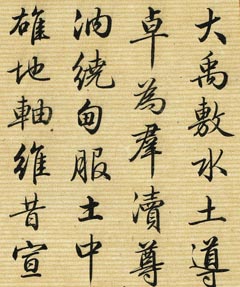 大禹敷水土導
卓為羣瀆尊
汭繞甸服土中
雄地軸維昔宣